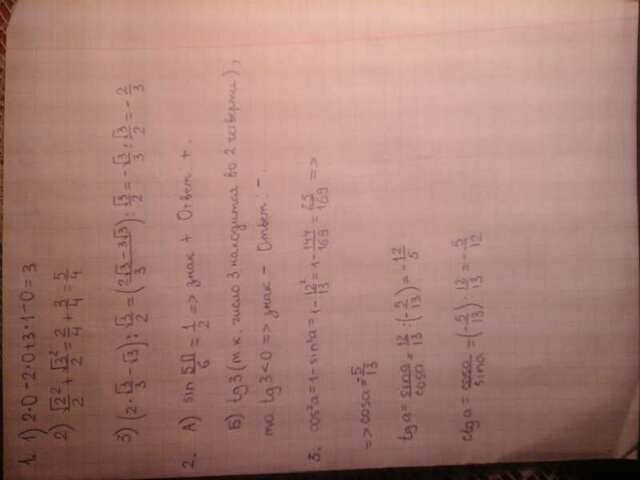 1. 1) 2·0-2·0+3·1-0=3
2) √2²/2 + √3²/2 = 2/4 + 3/4 = 5/4
3) (2·√3/3 - √3) : √3/2 = (2√3-3√3/3) : √3/2 = -√3/3 : √3/2 = -2/3
2. А) sin 5П/6 = 1/2 => знак + Ответ: +.
Б) tg3 (т.к. число 3 находится во 2 четверти),
то tg3<0 => знак - Ответ: -.
3. cos²a = 1-sin²a = 1-12²/13 = 1-144/169 = 25/169 =>
=> cosa = -5/13
tga = sina/cosa = 12/13 : (-5/13) = -12/5
ctga = cosa/sina = (-5/13) : 12/13 = -5/12